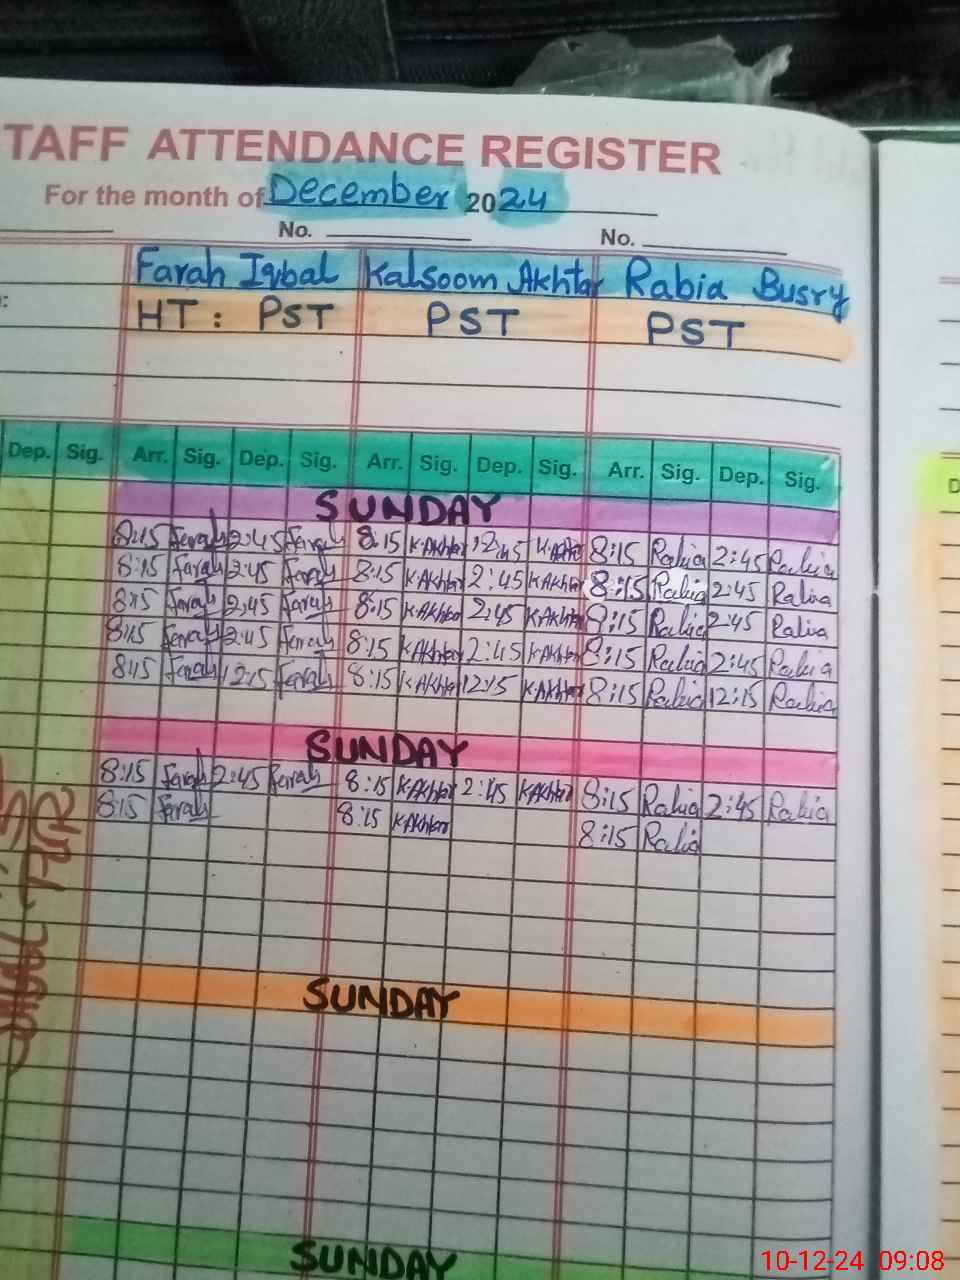 TAFF ATTENDANCE REGISTER
For the month of December 2024
No. No.
Farah Iqbal Kalsoom Akhtar Rabia Busry
HT : PST PST PST
Dep. Sig. Arr. Sig. Dep. Sig. Arr. Sig. Dep. Sig. Arr. Sig. Dep. Sig. D
SUNDAY
8:15 Farah 2:45 Farah 8:15 K.Akhtar 2:45 K.Akhtar 8:15 Rabia 2:45 Rabia
8:15 Farah 2:45 Farah 8:15 K.Akhtar 2:45 K.Akhtar 8:15 Rabia 2:45 Rabia
8:15 Farah 2:45 Farah 8:15 K.Akhtar 2:45 K.Akhtar 8:15 Rabia 2:45 Rabia
8:15 Farah 2:45 Farah 8:15 K.Akhtar 2:45 K.Akhtar 8:15 Rabia 2:45 Rabia
8:15 Farah 12:15 Farah 8:15 K.Akhtar 12:15 K.Akhtar 8:15 Rabia 12:15 Rabia
SUNDAY
8:15 Farah 2:45 Farah 8:15 K.Akhtar 2:45 K.Akhtar 8:15 Rabia 2:45 Rabia
8:15 Farah 8:15 K.Akhtar 8:15 Rabia
SUNDAY
SUNDAY
10-12-24 09:08